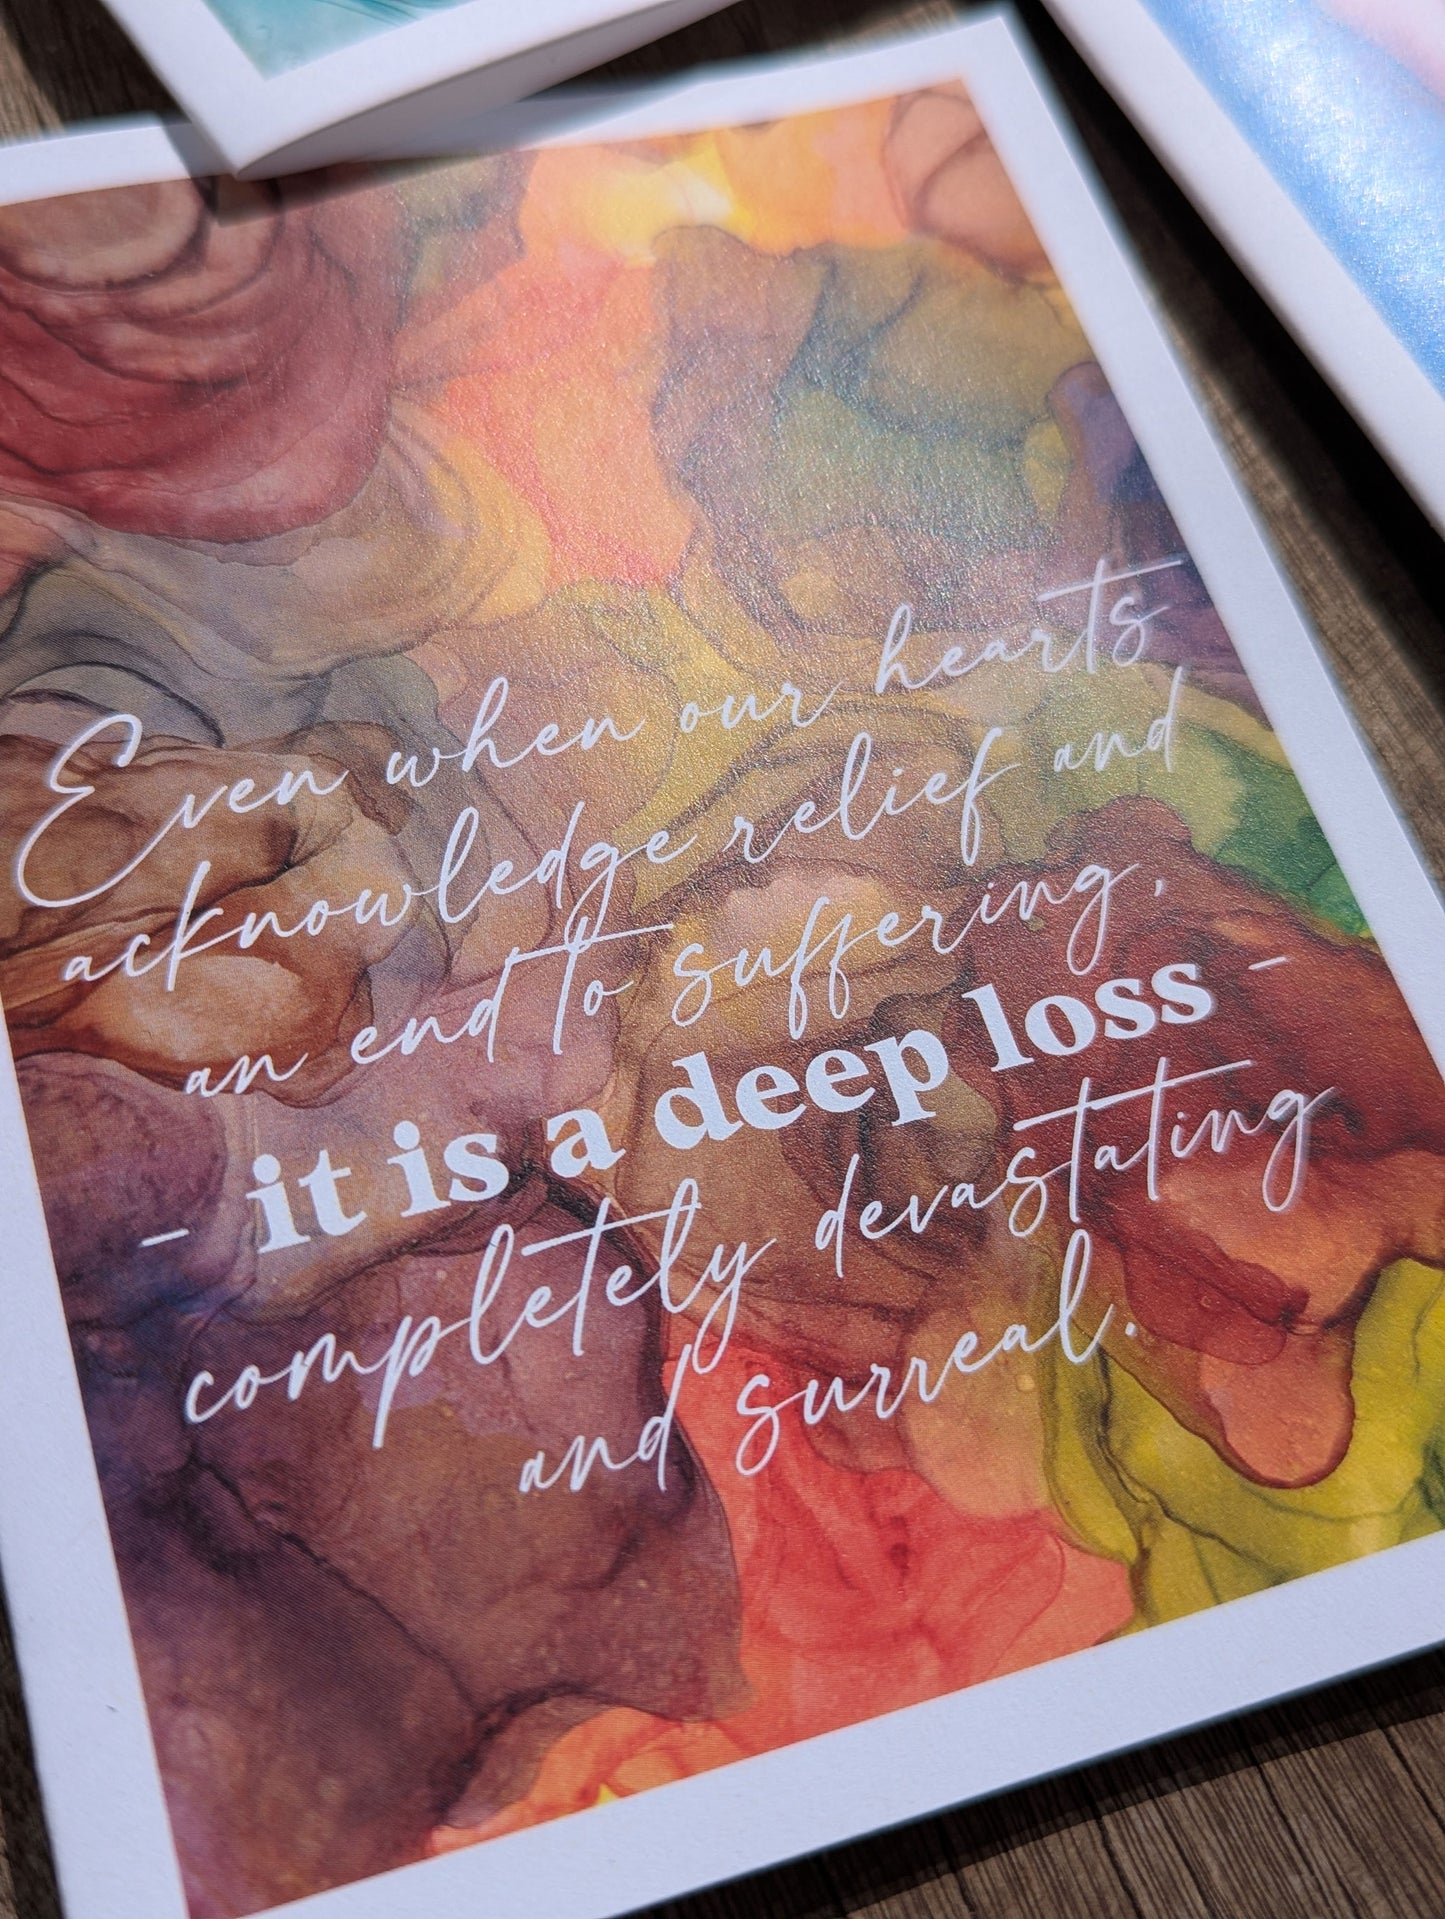 Even when our hearts
acknowledge relief and
an end to suffering,
- it is a deep loss -
completely devastating
and surreal.